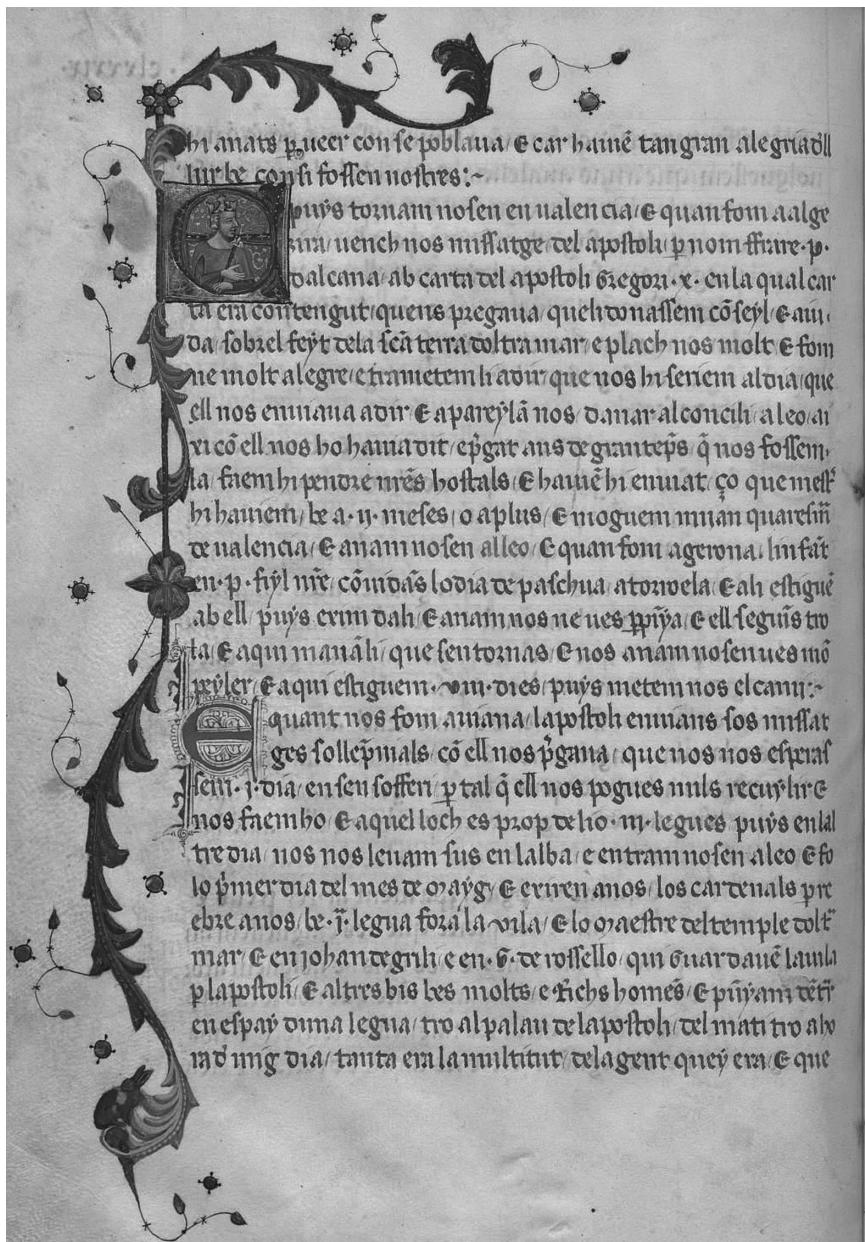 hi anats p̲ ueer con se poblaua / E car hauiē tan gran alegria d'll
lur be con si fossen nostres :~
E puys tornam nosen en ualencia / E quan fom a alge
zira / uench nos missatge del apostoli / p̲ nom ffrare · p ·
dalcana / ab carta del apostoli Gregori · x · en la qual car
ta era contengut / quens pregaua / queli donassem cōseyl / E aiu ·
da / sobrel feyt dela scā terra doltra mar / e plach nos molt E fom
ne molt alegre / e trametem li a dir / que nos hi seriem al dia / que
ell nos enuiaua a dir E apareylā nos / danar al concili / a leo / ai
xi cō ell nos ho hauia dit / e p̄gat ans de gran teps̄ q̄ nos fossem ·
la / faem hi pendre nr̄es hostals / E hauiē hi enuiat / ço que mest̄
hi hauiem / be a · ij · meses / o a plus / E moguem mijan quaresm̄
de ualencia / E anam nosen al leo / E quan fom a gerona / linfāt
en · p · fiyl nr̄e / cōuidās lo dia de paschua / a torroela / E ali estiguē
ab ell / puys exim dali / E anam nos ne ues p̲pȳa / E ell seguīs tro
la / E aqui manāli / que sen tornas / E nos anam nosen ues mō
peyler / E aqui estiguem · viii · dies / puys metem nos el cami :~
E quant nos fom a uiana / lapostoli enuians sos missat
ges sollep̄mals / cō ell nos p̄gaua / que nos nos esperas
sem · j · dia / en sen soffen / p̲ tal q̄ ell nos pogues mils recuylir E
nos faem ho / E aquel loch es prop de lio · iii · legues / puys en lal
tre dia / nos nos leuam sus en lalba / e entram nosen a leo E fo
lo p̄mer dia del mes de mayg / E exiren a nos / los cardenals pre
ebre a nos / be · j · legua fora la vila / E lo maestre del temple dolt̄
mar / E en johan de grili / e en · G · de rossello / qui guardauē la uila
p̲ lapostoli / E altres bisbes molts / e Richs homēs / E puyam dētr̄
en espay duna legua / tro al palau de lapostoli / del mati tro a ho
ra d' mig dia / tanta era la multitut / dela gent quey era / E que